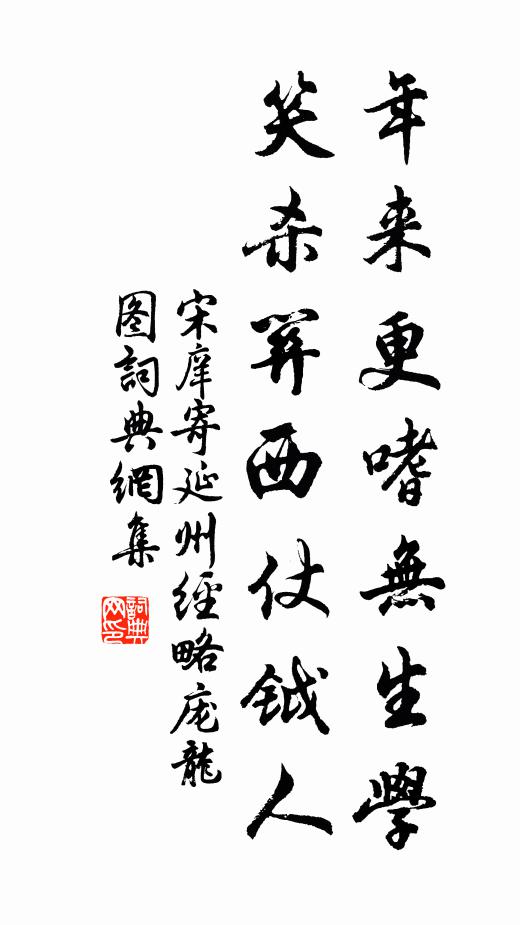 年来更嗜無生學
笑杀羿西仗鉞人
宋庠寄延州經略庞龍
图詞典網集
詞典
网印